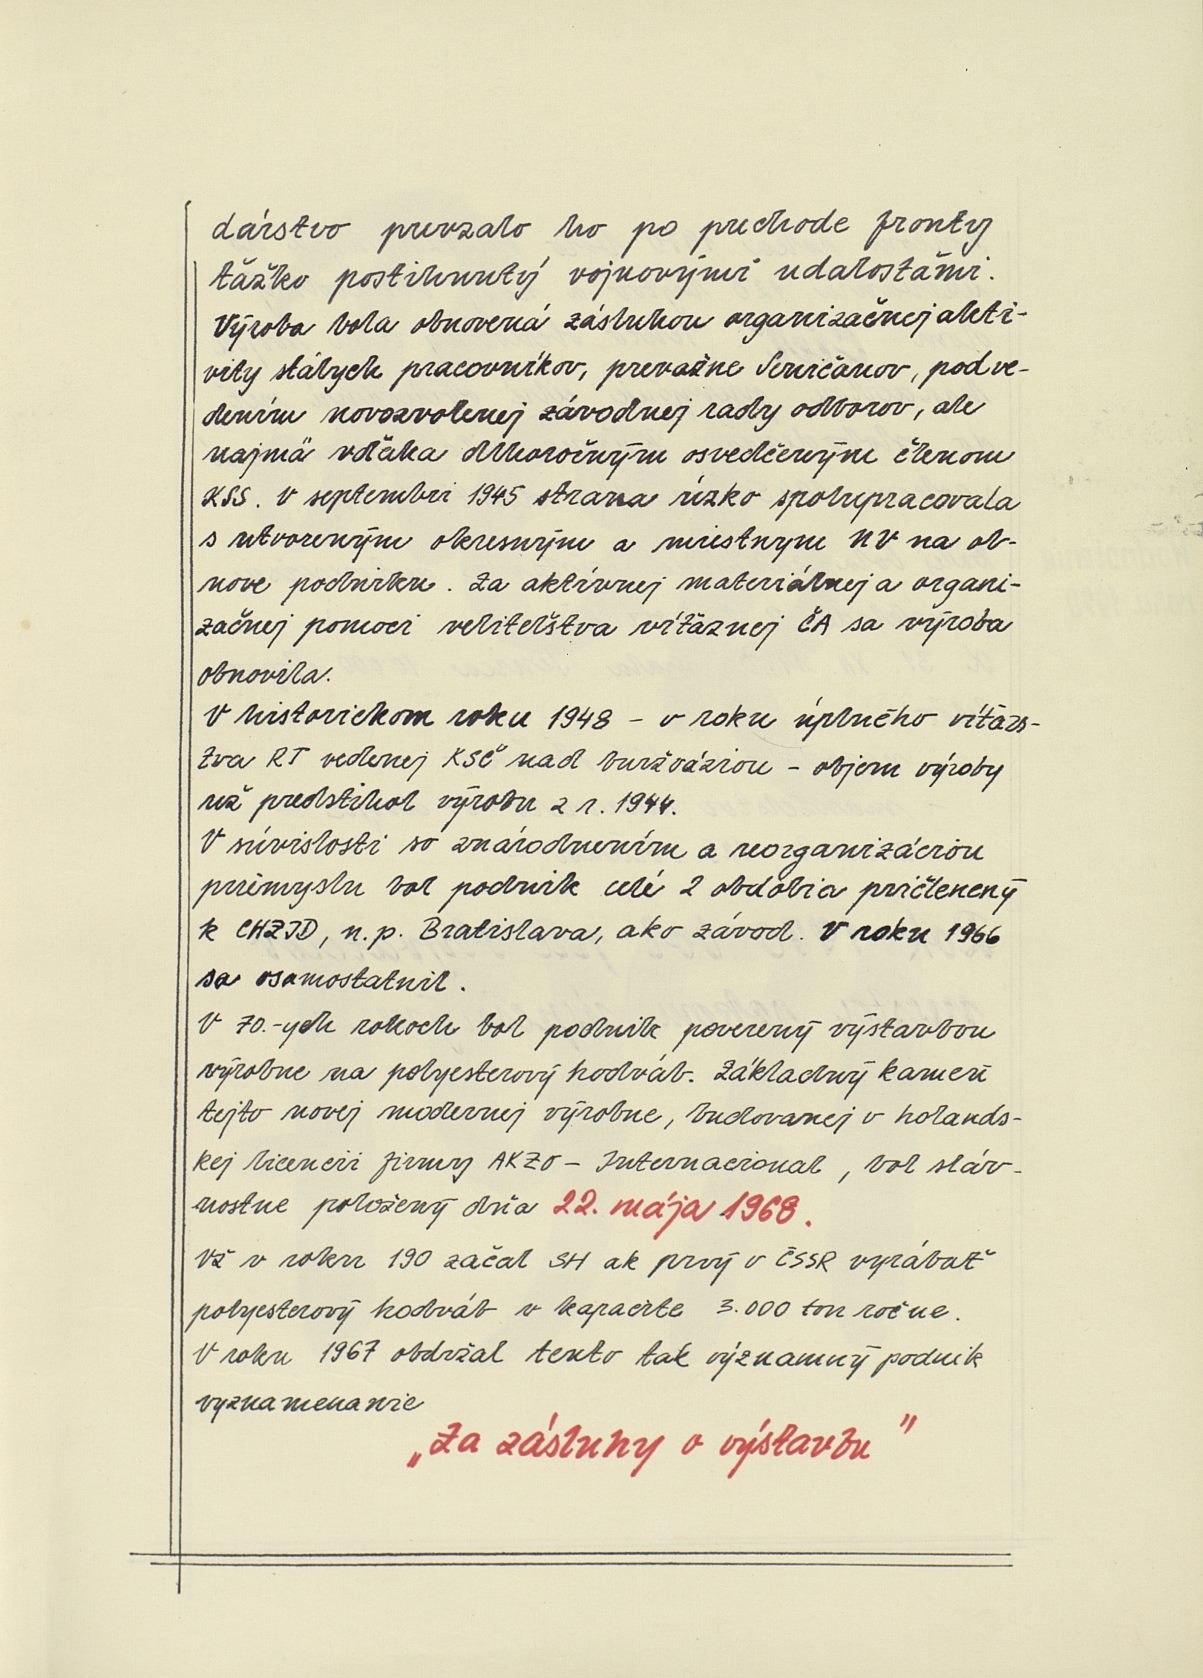 dárstvo prevzalo ho po prechode fronty
ťažko postihnutý vojnovými udalosťami.
Výroba bola obnovená zásluhou organizačnej akti-
vity stálych pracovníkov, prevažne Seničanov, pod ve-
dením novozvolenej závodnej rady odborov, ale
najmä vďaka dlhoročným osvedčeným členom
KSS. V septembri 1945 strana úzko spolupracovala
s utvoreným okresným a miestnym NV na ob-
nove podniku. Za aktívnej materiálnej a organi-
začnej pomoci veliteľstva víťaznej ČA sa výroba
obnovila.
V historickom roku 1948 - v roku úplného víťazs-
tva RT vedenej KSČ nad buržoáziou - objem výroby
už predstihol výrobu z r. 1944.
V súvislosti so znárodnením a reorganizáciou
priemyslu bol podnik celé 2 obdobia pričlenený
k CHZJD, n.p. Bratislava, ako závod. V roku 1966
sa osamostatnil.
V 70.-ych rokoch bol podnik poverený výstavbou
výrobne na polyesterový hodváb. Základný kameň
tejto novej modernej výrobne, budovanej v holands-
kej licencii firmy AKZO - Internacional, bol sláv-
nostne položený dňa 22. mája 1968.
Už v roku 190 začal SH ak prvý v ČSSR vyrábať
polyesterový hodváb v kapacite 3.000 ton ročne.
V roku 1967 obdržal tento tak významný podnik
vyznamenanie
„Za zásluhy o výstavbu"